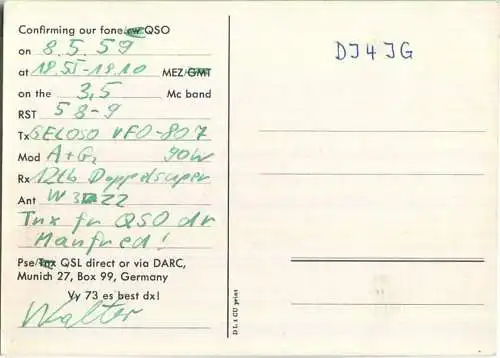 Confirming our fone cw QSO
on 8.5.59
at 18.55-19.10 MEZ/GMT
on the 3,5 Mc band
RST 58-9
Tx GELOSO VFO-807
Mod A+G2 90W
Rx 12tb Doppelsuper
Ant W3DZZ
Tnx fr QSO dr
Manfred!
Pse/Tnx QSL direct or via DARC,
Munich 27, Box 99, Germany
Vy 73 es best dx!
Walter
DJ4JG
DL1CU print